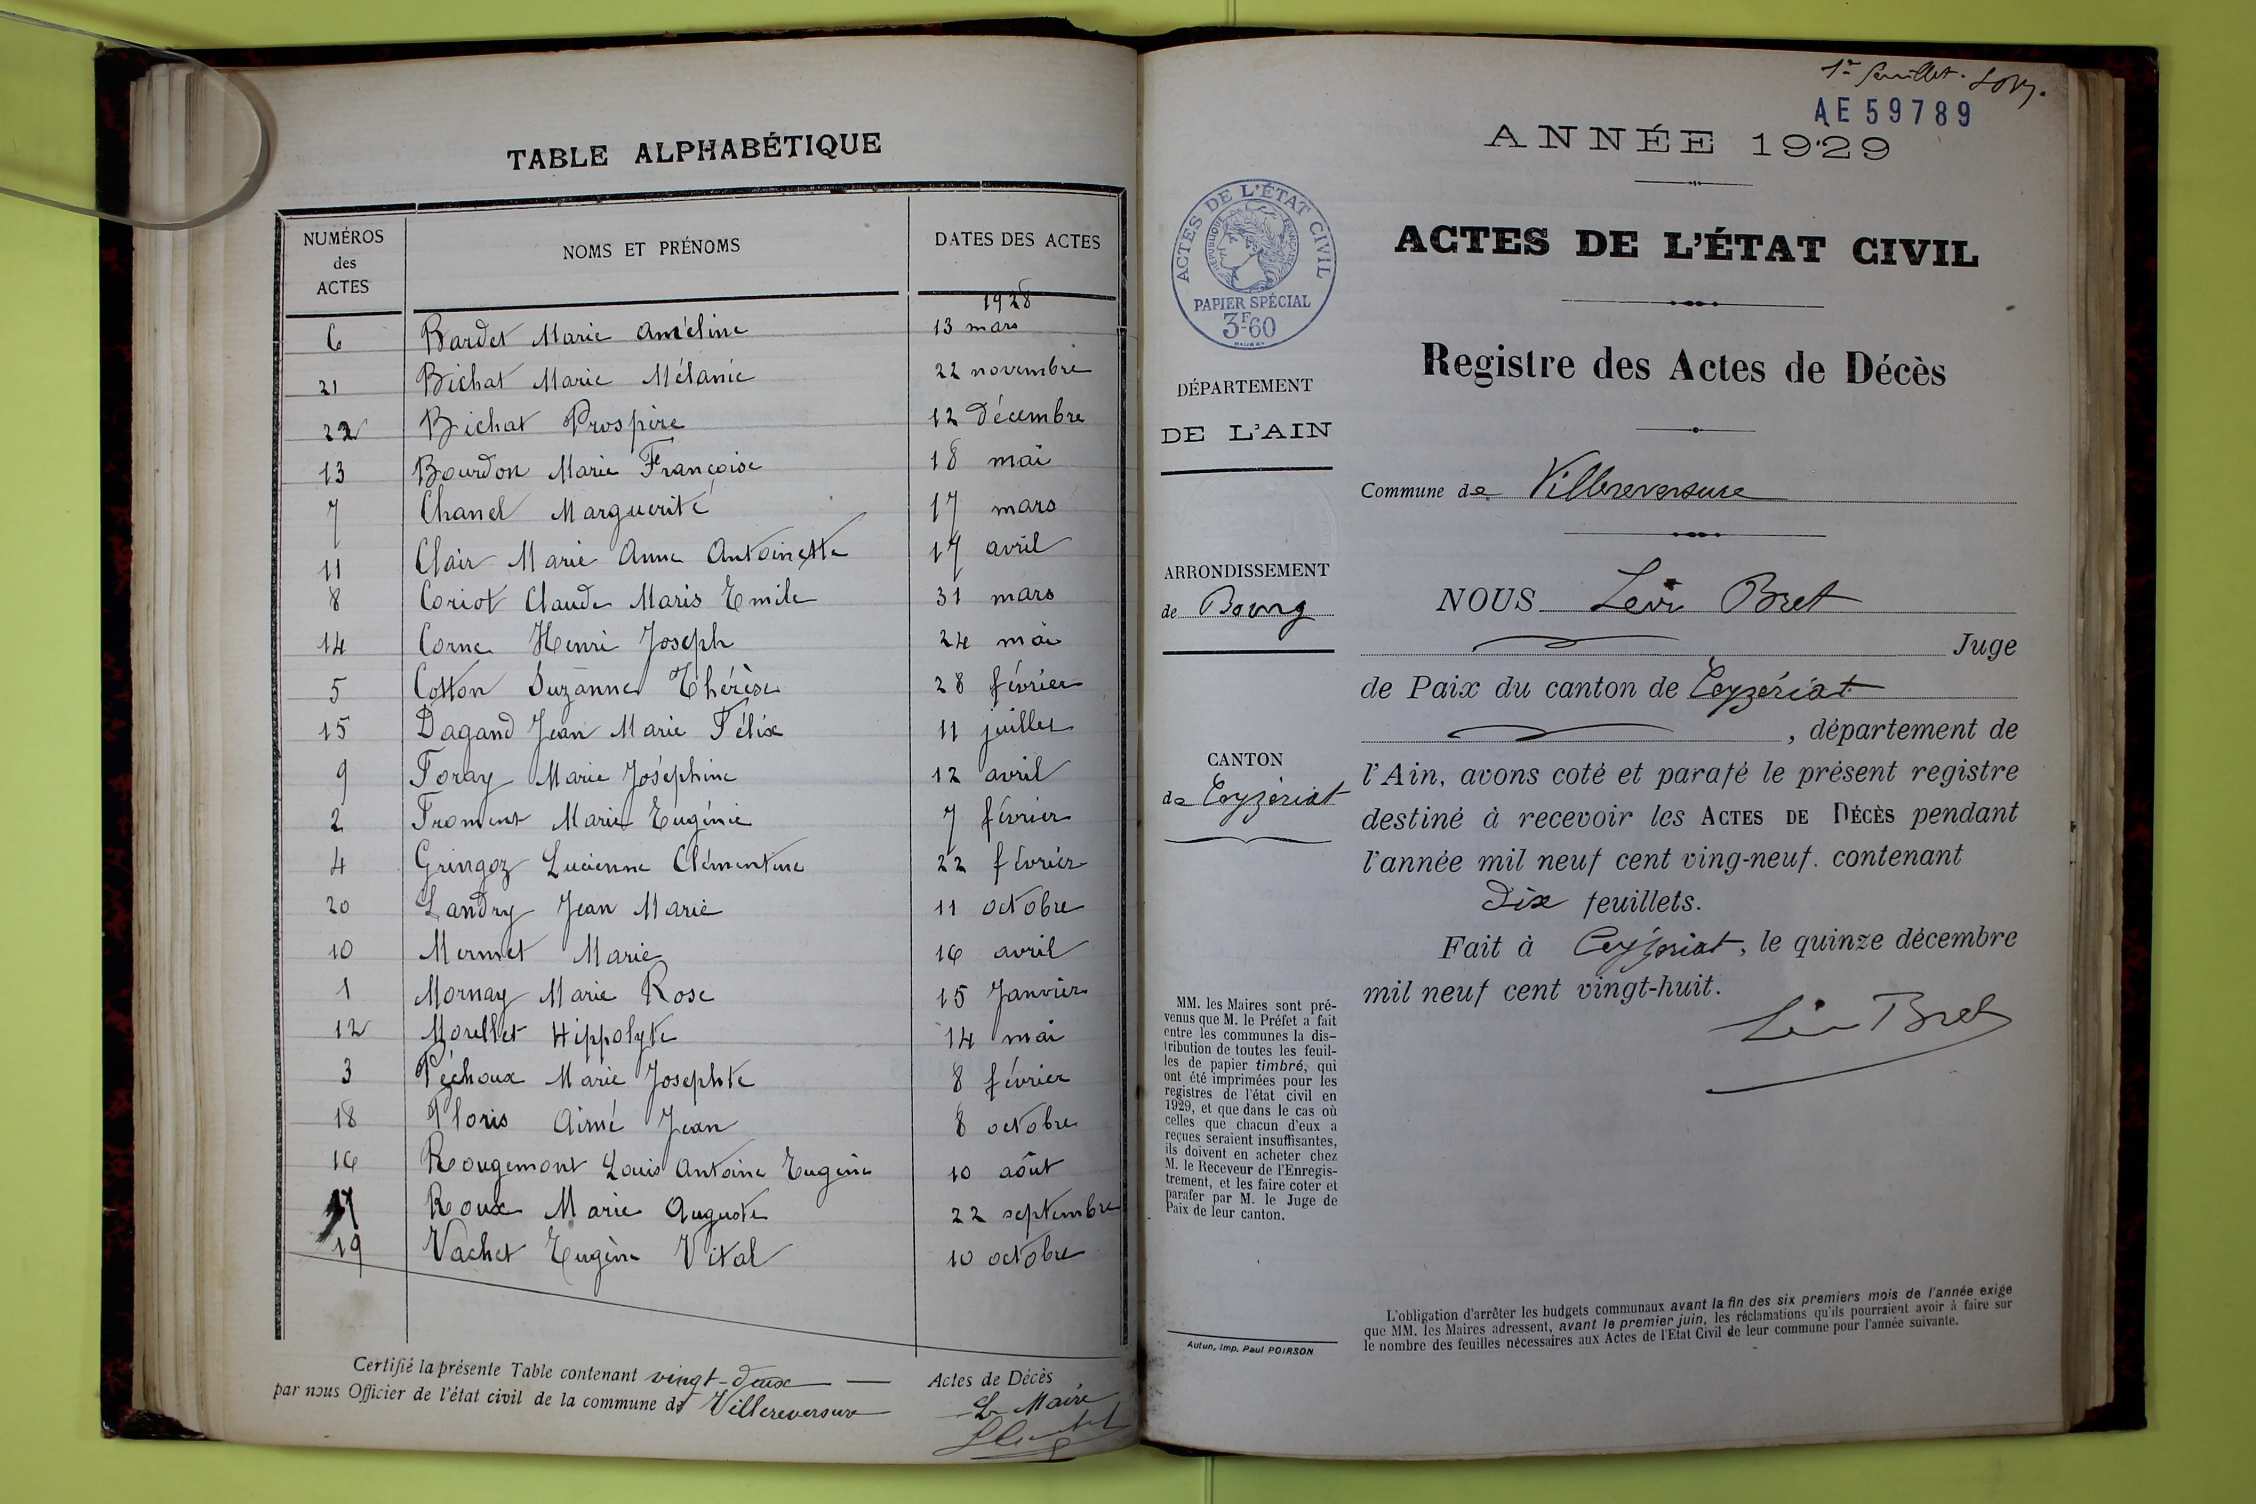 TABLE ALPHABÉTIQUE
NUMÉROS des ACTES NOMS ET PRÉNOMS DATES DES ACTES
1928
6 Bardet Marie Améline 13 mars
21 Bichat Marie Mélanie 22 novembre
22 Bichat Prospère 12 Décembre
13 Bourdon Marie Françoise 18 mai
7 Chanel Marguerite 17 mars
11 Clair Marie Anne Antoinette 17 avril
8 Coriot Claude Maris Emile 31 mars
14 Corne Henri Joseph 24 mai
5 Cotton Suzanne Thérèse 28 février
15 Dagand Jean Marie Félix 11 juillet
9 Foray Marie Joséphine 12 avril
2 Froment Marie Eugénie 7 février
4 Gringoz Lucienne Clémentine 22 février
20 Landry Jean Marie 11 octobre
10 Mermet Marie 16 avril
1 Mornay Marie Rose 15 Janvier
12 Morellet Hippolyte 14 mai
3 Péchoux Marie Josephte 8 février
18 Ploris Aimé Jean 8 octobre
16 Rougemont Louis Antoine Eugène 10 août
17 Roux Marie Auguste 22 septembre
19 Vachet Eugène Vital 10 octobre
Certifié la présente Table contenant vingt-deux Actes de Décès
par nous Officier de l'état civil de la commune de Villereversure
Le Maire
1er feuillet.
AE59789
ANNÉE 1929
ACTES DE L'ÉTAT CIVIL
RÉPUBLIQUE FRANÇAISE
PAPIER SPÉCIAL
3F60
ACTES DE L'ÉTAT CIVIL
Registre des Actes de Décès
DÉPARTEMENT
DE L'AIN
Commune de Villereversure
ARRONDISSEMENT
de Bourg
NOUS Léon Bret
Juge
de Paix du canton de Ceyzériat
, département de
CANTON
de Ceyzériat
l'Ain, avons coté et parafé le présent registre
destiné à recevoir les ACTES DE DÉCÈS pendant
l'année mil neuf cent ving-neuf. contenant
Dix feuillets.
Fait à Ceyzériat, le quinze décembre
mil neuf cent vingt-huit.
Léon Bret
MM. les Maires sont pré-
venus que M. le Préfet a fait
entre les communes la dis-
tribution de toutes les feuil-
les de papier timbré, qui
ont été imprimées pour les
registres de l'état civil en
1929, et que dans le cas où
celles que chacun d'eux a
reçues seraient insuffisantes,
ils doivent en acheter chez
M. le Receveur de l'Enregis-
trement, et les faire coter et
parafer par M. le Juge de
Paix de leur canton.
Autun, Imp. Paul POIRSON
L'obligation d'arrêter les budgets communaux avant la fin des six premiers mois de l'année exige
que MM. les Maires adressent, avant le premier juin, les réclamations qu'ils pourraient avoir à faire sur
le nombre des feuilles nécessaires aux Actes de l'Etat Civil de leur commune pour l'année suivante.